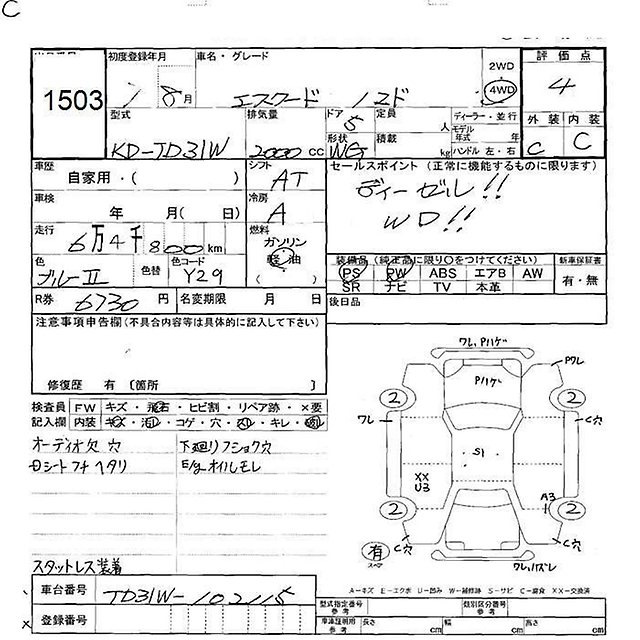 C
1503
初度登録年月
車名・グレード
2WD
4WD
評価点
8月
エスクード ノマド
4
型式
排気量
ドア
定員
ディーラー・並行
外装
内装
5
人
モデル年式
年
KD-TD31W
2000 cc
形状
WG
積載
kg
ハンドル 左・右
C
C
車歴
自家用・( )
シフト
AT
セールスポイント (正常に機能するものに限ります)
ディーゼル!!
車検
年 月( 日)
冷房
A
WD!!
走行
6万4千800km
燃料
ガソリン
軽油
( )
装備品 (純正品に限り○をつけてください)
新車保証書
色
ブルーII
色替
色コード
Y29
PS
PW
ABS
エアB
AW
有・無
SR
ナビ
TV
本革
R券
6730円
名変期限
月 日
後日品
注意事項申告欄(不具合内容等は具体的に記入して下さい)
修復歴 有 〔箇所 〕
検査員
FW
キズ・飛石・ヒビ割・リペア跡・×要
記入欄
内装
キズ・汚れ・コゲ・穴・スレ・キレ・
オーディオ欠 穴
下廻りフショク穴
Dシートフチ ヘタリ
E/gオイルモレ
スタットレス装着
ワレ,Pハゲ
Pワレ
Pハゲ
2
2
ワレ
C穴
S1
XX
U3
A3
2
2
有
スペア
C穴
C穴
ワレ,ハズレ
A-キズ E-エクボ U-凹み W-補修跡 S-サビ C-腐食 XX-交換済
車台番号
TD31W-102115
型式指定番号
参考
類別区分番号
参考
登録番号
車庫証明用
参考
長さ
cm
幅
cm
高さ
cm